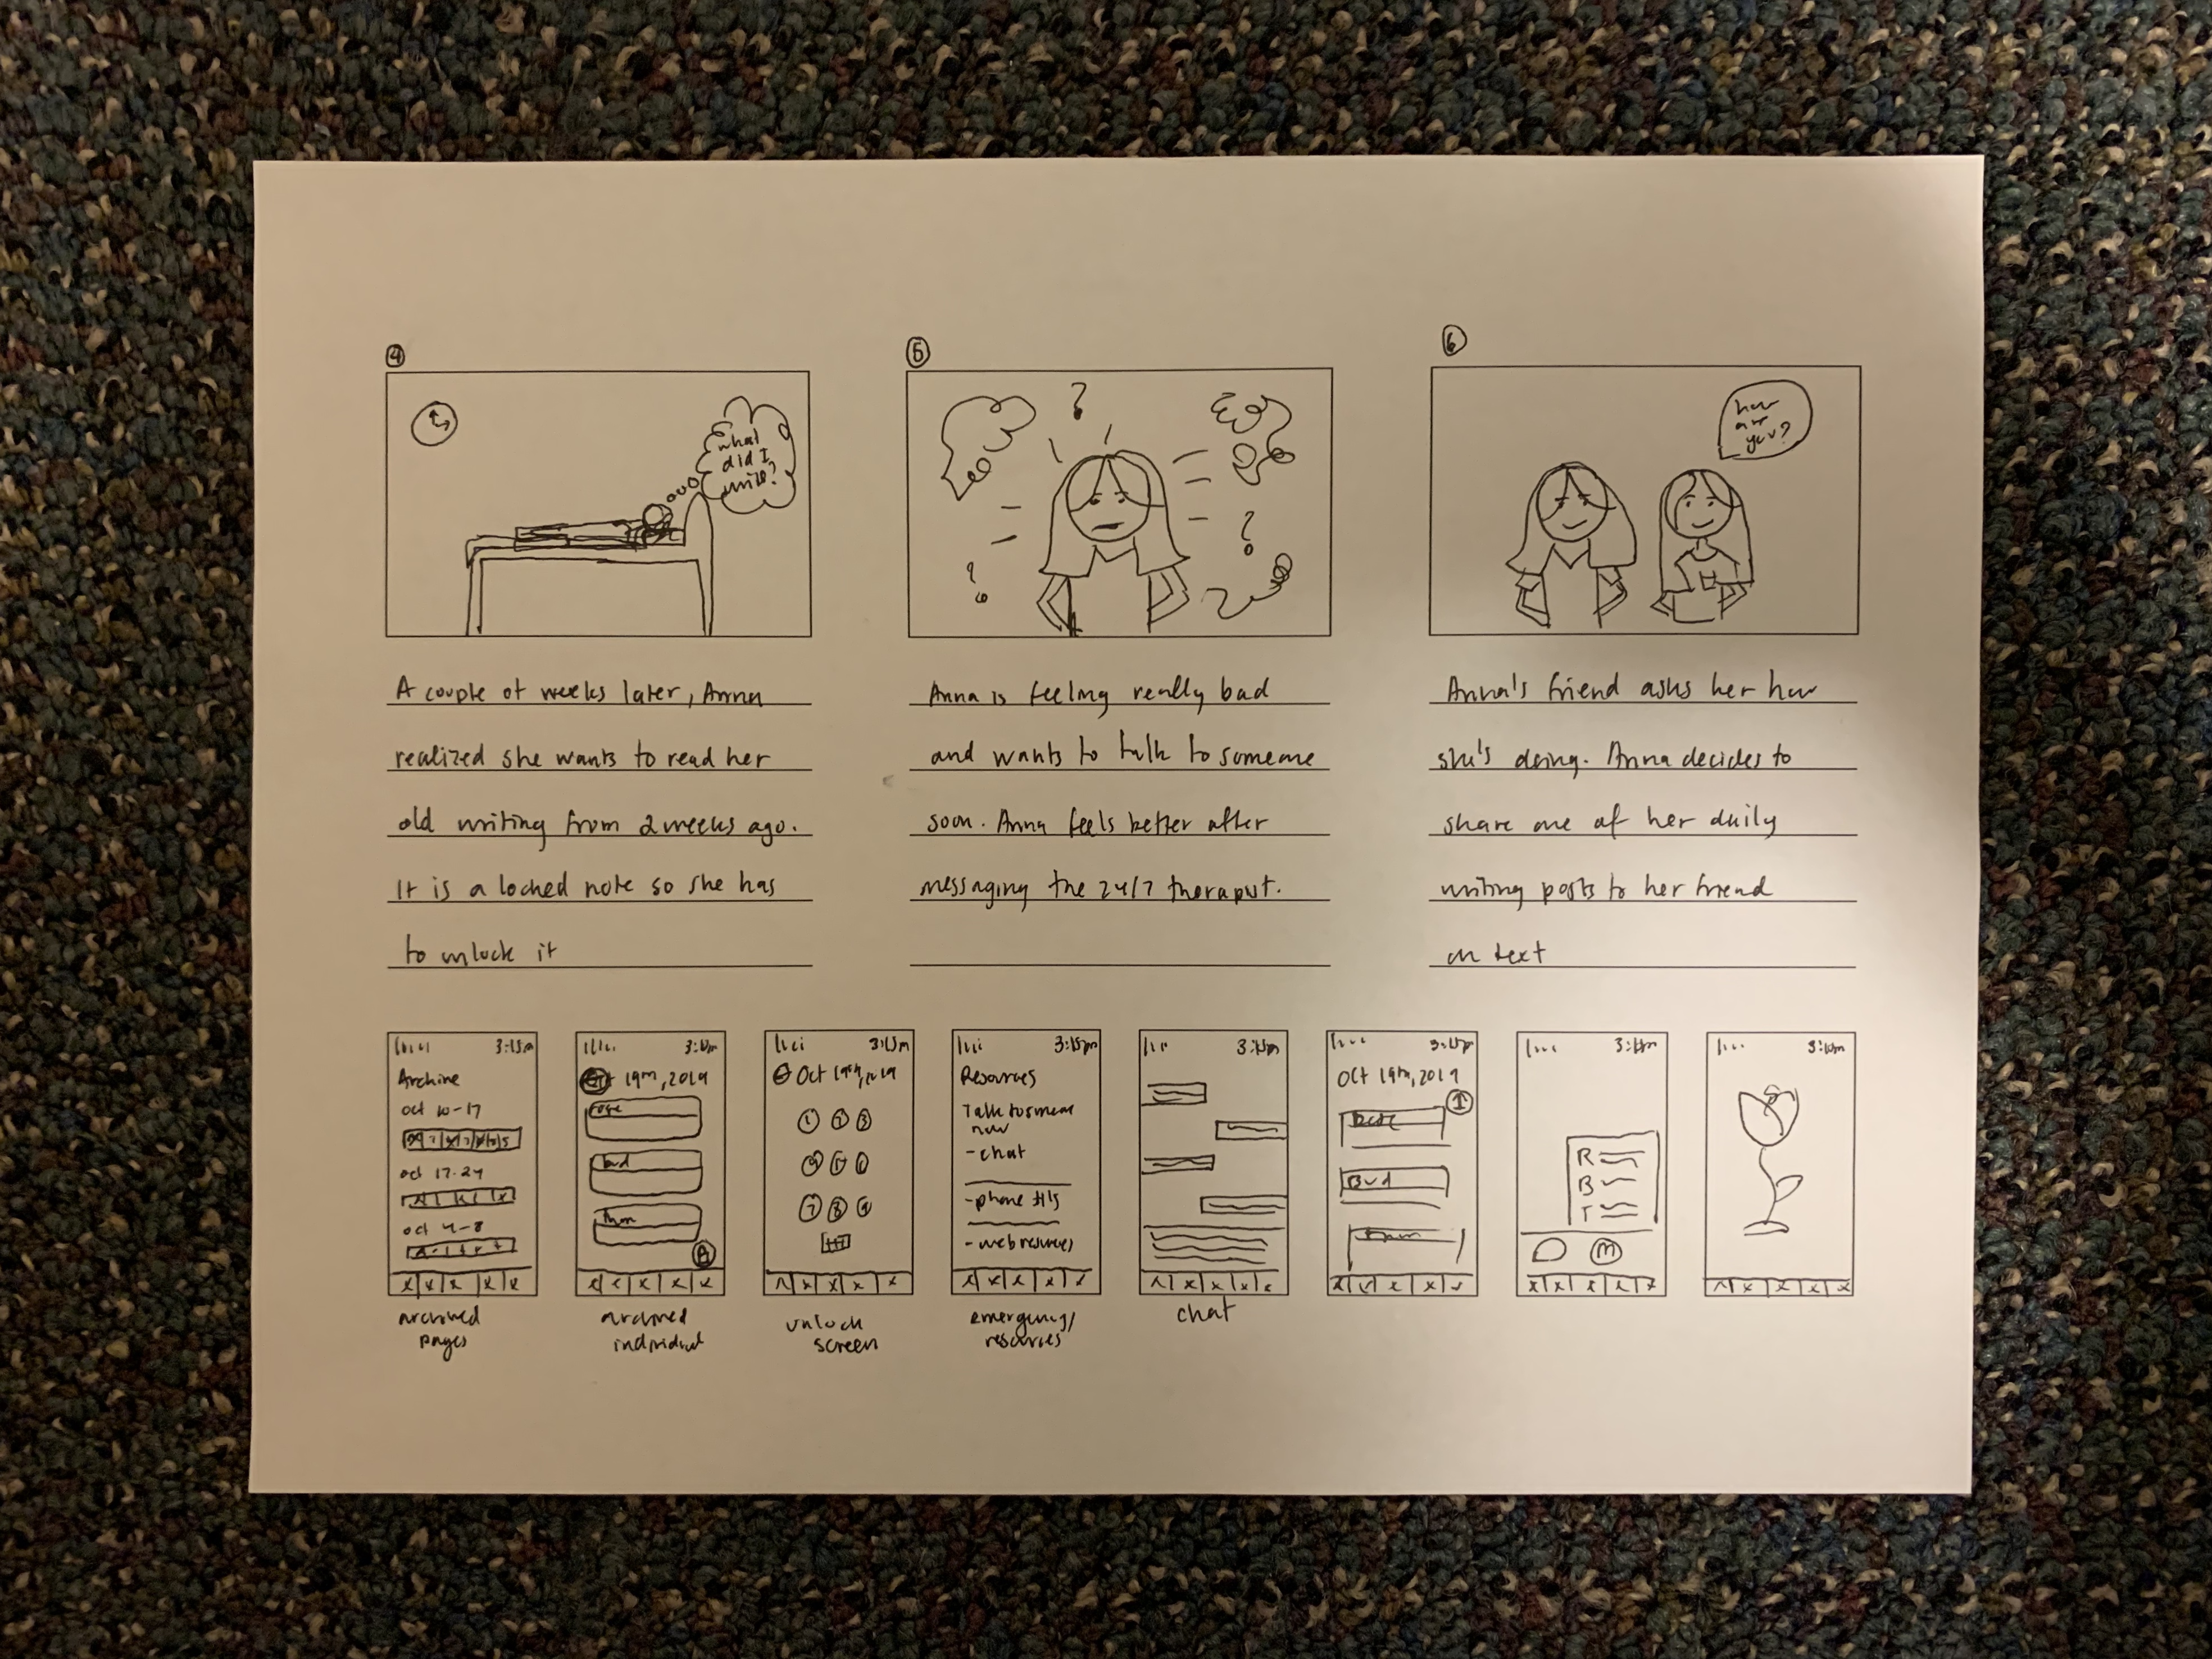 4
what
did I
write?
A couple of weeks later, Anna
realized she wants to read her
old writing from 2 weeks ago.
It is a locked note so she has
to unlock it
5
?
?
?
Anna is feeling really bad
and wants to talk to someone
soon. Anna feels better after
messaging the 24/7 therapist.
6
how
are
you?
Anna's friend asks her how
she's doing. Anna decides to
share one of her daily
writing posts to her friend
on text
3:15m
Archive
oct 10-17
oct 17-24
oct 4-8
archived
pages
3:15m
19th, 2019
rose
bud
thorn
archived
individual
3:15m
Oct 19th, 2019
1 2 3
4 5 6
7 8 9
unlock
screen
3:15pm
Resources
Talk to someone
now
- chat
- phone #'s
- web resources
emergency/
resources
3:15m
chat
3:15p
Oct 19th, 2019
Rose
Bud
Thorn
3:15m
R
B
T
M
3:15m